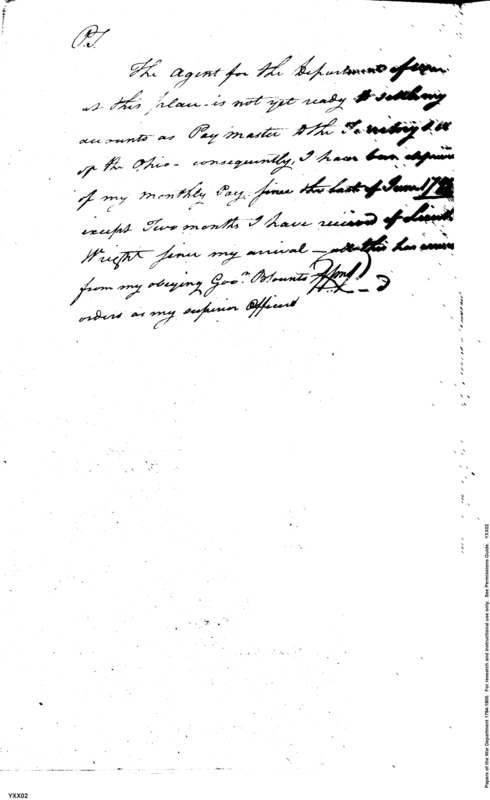 P.S.
The Agent for the Department of War
at this place - is not yet ready to settle my
accounts as Pay master to the Territory S. W.
of the Ohio - consequently, I have been deprived
of my monthly Pay since the last of June
except Two months I have received of Lieut.
Wright since my arrival - all this has
from my obeying Gov.r Blounts
orders as my superior Officer
Papers of the War Department 1784-1800. For research and instructional use only. See Permissions Guide. YXX02
YXX02